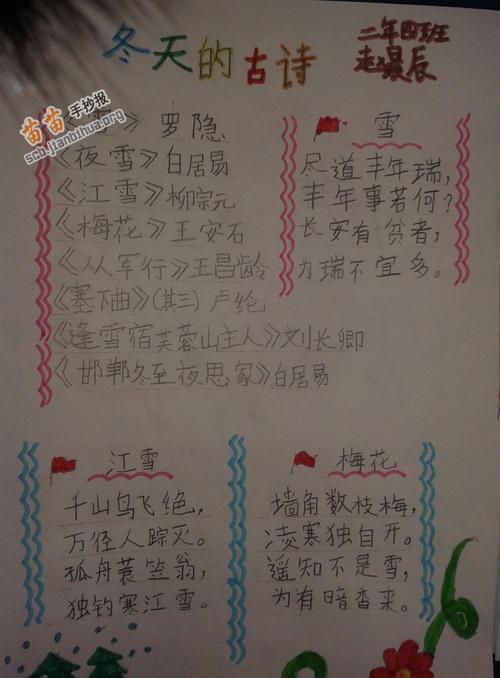 冬天的古诗
二年四班
赵晨辰
苗苗手抄报
scb.jianbihua.org
雪》 罗隐
《夜雪》白居易
《江雪》柳宗元
《梅花》王安石
《从军行》王昌龄
《塞下曲》(其三) 卢纶
《逢雪宿芙蓉山主人》刘长卿
《邯郸冬至夜思家》白居易
雪
尽道丰年瑞,
丰年事若何?
长安有贫者,
为瑞不宜多。
江雪
千山鸟飞绝,
万径人踪灭。
孤舟蓑笠翁,
独钓寒江雪。
梅花
墙角数枝梅,
凌寒独自开。
遥知不是雪,
为有暗香来。